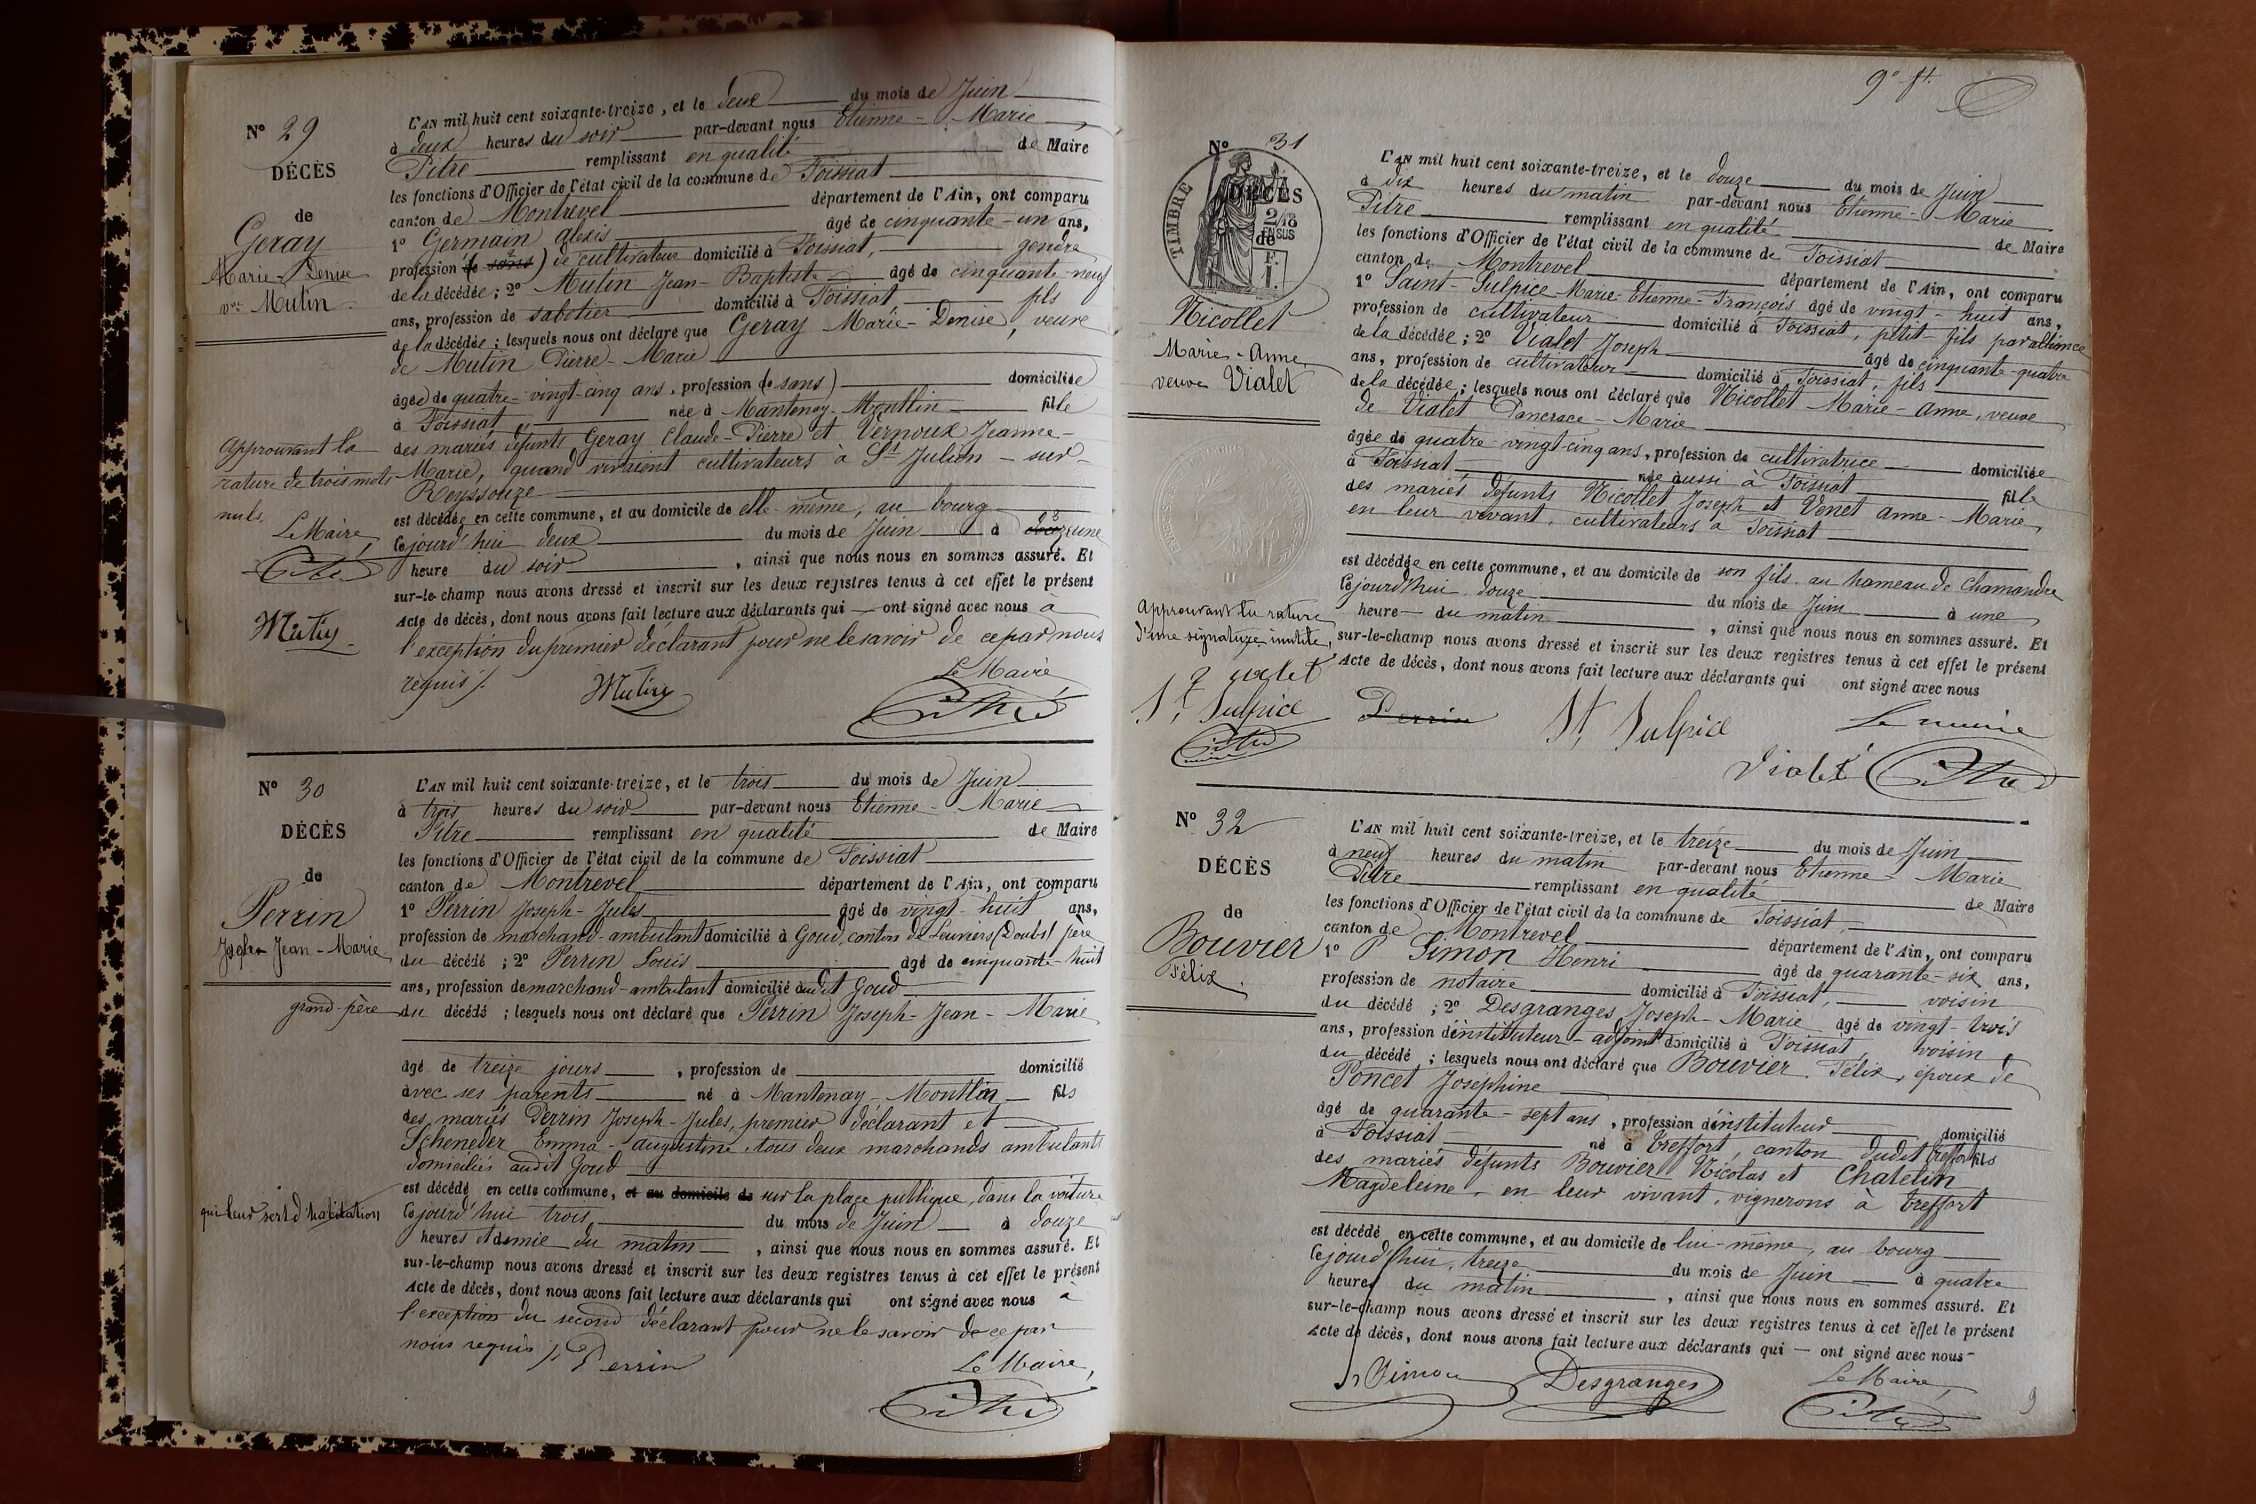 N° 29
DÉCÈS
de
Geray
Marie-Denise
vve Mutin
L'AN mil huit cent soixante-treize, et le deux du mois de Juin
à deux heures du soir par-devant nous Etienne-Marie
Pitre remplissant en qualité de Maire
les fonctions d'Officier de l'état civil de la commune de Foissiat
canton de Montrevel département de l'Ain, ont comparu
1° Germain Alexis âgé de cinquante-un ans,
profession (de sans) de cultivateur domicilié à Foissiat, gendre
de la décédée; 2° Mutin Jean-Baptiste âgé de cinquante-neuf
ans, profession de sabotier domicilié à Foissiat, fils
de la décédée; lesquels nous ont déclaré que Geray Marie-Denise, veuve
de Mutin Pierre-Marie
âgée de quatre-vingt-cinq ans, profession (de sans) domiciliée
à Foissiat née à Mantenay-Montlin fille
des mariés défunts Geray Claude-Pierre et Vernoux Jeanne-
Marie, quand vivaient cultivateurs à St Julien-sur-
Reyssouze
est décédée en cette commune, et au domicile de elle-même, au bourg
cejourd'hui deux du mois de Juin à une
heure du soir, ainsi que nous nous en sommes assuré. Et
sur-le-champ nous avons dressé et inscrit sur les deux registres tenus à cet effet le présent
Acte de décès, dont nous avons fait lecture aux déclarants qui — ont signé avec nous à
l'exception du premier déclarant pour ne le savoir de ce par nous
requis ./.
Approuvant la
rature de trois mots
nuls.
Le Maire,
Pitre
Mutin
Mutin
Le Maire
Pitre
N° 30
DÉCÈS
de
Perrin
Joseph Jean-Marie
L'AN mil huit cent soixante-treize, et le trois du mois de Juin
à trois heures du soir par-devant nous Etienne-Marie
Pitre remplissant en qualité de Maire
les fonctions d'Officier de l'état civil de la commune de Foissiat
canton de Montrevel département de l'Ain, ont comparu
1° Perrin Joseph-Jules âgé de vingt-huit ans,
profession de marchand-ambulant domicilié à Goud, canton de (Doubs) père
du décédé; 2° Perrin Louis âgé de cinquante-huit
ans, profession de marchand-ambulant domicilié audit Goud
grand-père du décédé; lesquels nous ont déclaré que Perrin Joseph-Jean-Marie
âgé de treize jours, profession de domicilié
avec ses parents né à Mantenay-Montlin fils
des mariés Perrin Joseph-Jules, premier déclarant et
Scheneder Emma-Augustine tous deux marchands ambulants
domiciliés audit Goud
est décédé en cette commune, et au domicile de sur la place publique, dans la voiture
qui leur sert d'habitation
cejourd'hui trois du mois de Juin à douze
heures et demie du matin, ainsi que nous nous en sommes assuré. Et
sur-le-champ nous avons dressé et inscrit sur les deux registres tenus à cet effet le présent
Acte de décès, dont nous avons fait lecture aux déclarants qui ont signé avec nous à
l'exception du second déclarant pour ne le savoir de ce par
nous requis ./. Perrin
Le Maire,
Pitre
9e ft.
N° 31
TIMBRE
DÉCÈS
2/10 EN SUS
de
Nicollet
Marie-Anne
veuve Vialet
L'AN mil huit cent soixante-treize, et le douze du mois de Juin
à dix heures du matin par-devant nous Etienne-Marie
Pitre remplissant en qualité de Maire
les fonctions d'Officier de l'état civil de la commune de Foissiat
canton de Montrevel département de l'Ain, ont comparu
1° Saint-Sulpice Marie-Etienne-François âgé de vingt-huit ans,
profession de cultivateur domicilié à Foissiat, petit-fils par alliance
de la décédée; 2° Vialet Joseph âgé de cinquante-quatre
ans, profession de cultivateur domicilié à Foissiat, fils
de la décédée; lesquels nous ont déclaré que Nicollet Marie-Anne, veuve
de Vialet Pancrace-Marie
âgée de quatre-vingt-cinq ans, profession de cultivatrice domiciliée
à Foissiat née aussi à Foissiat fille
des mariés défunts Nicollet Joseph et Venet Anne-Marie,
en leur vivant, cultivateurs à Foissiat
est décédée en cette commune, et au domicile de son fils, au hameau de Chamandre
cejourd'hui douze du mois de Juin à une
heure du matin, ainsi que nous nous en sommes assuré. Et
sur-le-champ nous avons dressé et inscrit sur les deux registres tenus à cet effet le présent
Acte de décès, dont nous avons fait lecture aux déclarants qui ont signé avec nous
Approuvant la rature
d'une signature inutile,
St Sulpice
Pitre
Perrin
St Sulpice
Le maire
Vialet
Pitre
N° 32
DÉCÈS
de
Bouvier
Félix.
L'AN mil huit cent soixante-treize, et le treize du mois de Juin
à neuf heures du matin par-devant nous Etienne-Marie
Pitre remplissant en qualité de Maire
les fonctions d'Officier de l'état civil de la commune de Foissiat,
canton de Montrevel département de l'Ain, ont comparu
1° Simon Henri âgé de quarante-six ans,
profession de notaire domicilié à Foissiat, voisin
du décédé; 2° Desgranges Joseph-Marie âgé de vingt-trois
ans, profession d'instituteur-adjoint domicilié à Foissiat, voisin
du décédé; lesquels nous ont déclaré que Bouvier Félix, époux de
Poncet Joséphine
âgé de quarante-sept ans, profession d'instituteur domicilié
à Foissiat né à Treffort, canton dudit Treffort fils
des mariés défunts Bouvier Nicolas et Chatelin
Magdeleine, en leur vivant, vignerons à Treffort
est décédé en cette commune, et au domicile de lui-même, au bourg
cejourd'hui, treize du mois de Juin à quatre
heures du matin, ainsi que nous nous en sommes assuré. Et
sur-le-champ nous avons dressé et inscrit sur les deux registres tenus à cet effet le présent
Acte de décès, dont nous avons fait lecture aux déclarants qui — ont signé avec nous
Simon
Desgranges
Le Maire,
Pitre
9